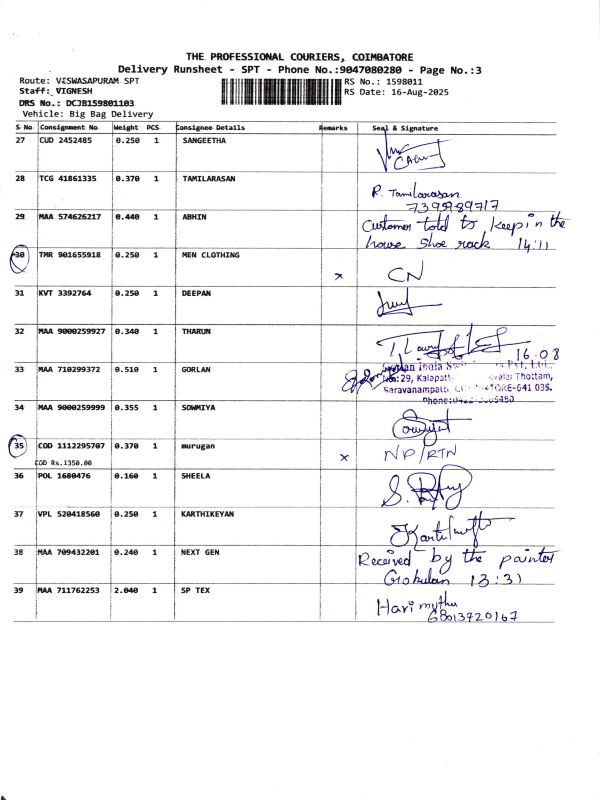 THE PROFESSIONAL COURIERS, COIMBATORE
Delivery Runsheet - SPT - Phone No.:9047080280 - Page No.:3
Route: VISWASAPURAM SPT
RS No.: 1598011
Staff: VIGNESH
RS Date: 16-Aug-2025
DRS No.: DCJB159801103
Vehicle: Big Bag Delivery
S No Consignment No Weight PCS Consignee Details Remarks Seal & Signature
27 CUD 2452485 0.250 1 SANGEETHA
28 TCG 41861335 0.370 1 TAMILARASAN R. Tamilarasan
7399989717
29 MAA 574626217 0.440 1 ABHIN Customer told to keep in the
house shoe rack 14:11
30 TMR 901655918 0.250 1 MEN CLOTHING x CN
31 KVT 3392764 0.250 1 DEEPAN
32 MAA 9000259927 0.340 1 THARUN
16.08
33 MAA 710299372 0.510 1 GORLAN India Pvt. Ltd.,
No:29, Kalapatti Thottam,
Saravanampatti, COIMBATORE-641 035.
Phone:0422
34 MAA 9000259999 0.355 1 SOWMIYA
35 COD 1112295707 0.370 1 murugan x NP/RTN
COD Rs.1350.00
36 POL 1680476 0.160 1 SHEELA
37 VPL 520418560 0.250 1 KARTHIKEYAN
38 MAA 709432201 0.240 1 NEXT GEN Received by the painter
Gokulan 13:31
39 MAA 711762253 2.040 1 SP TEX Hari mythu
68013720167